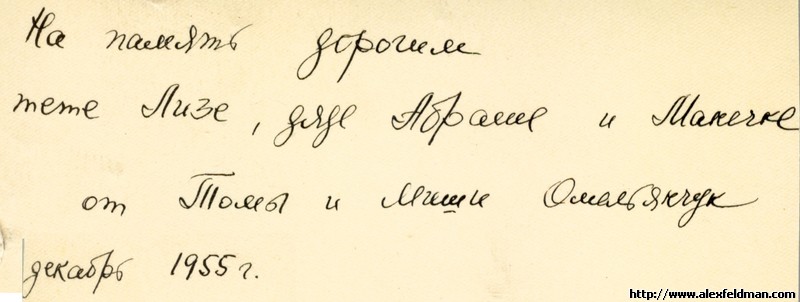 На память дорогим
тете Лизе, дяде Абраше и Манечке
от Томы и Миши Омельянчук
декабрь 1955 г.
http://www.alexfeldman.com